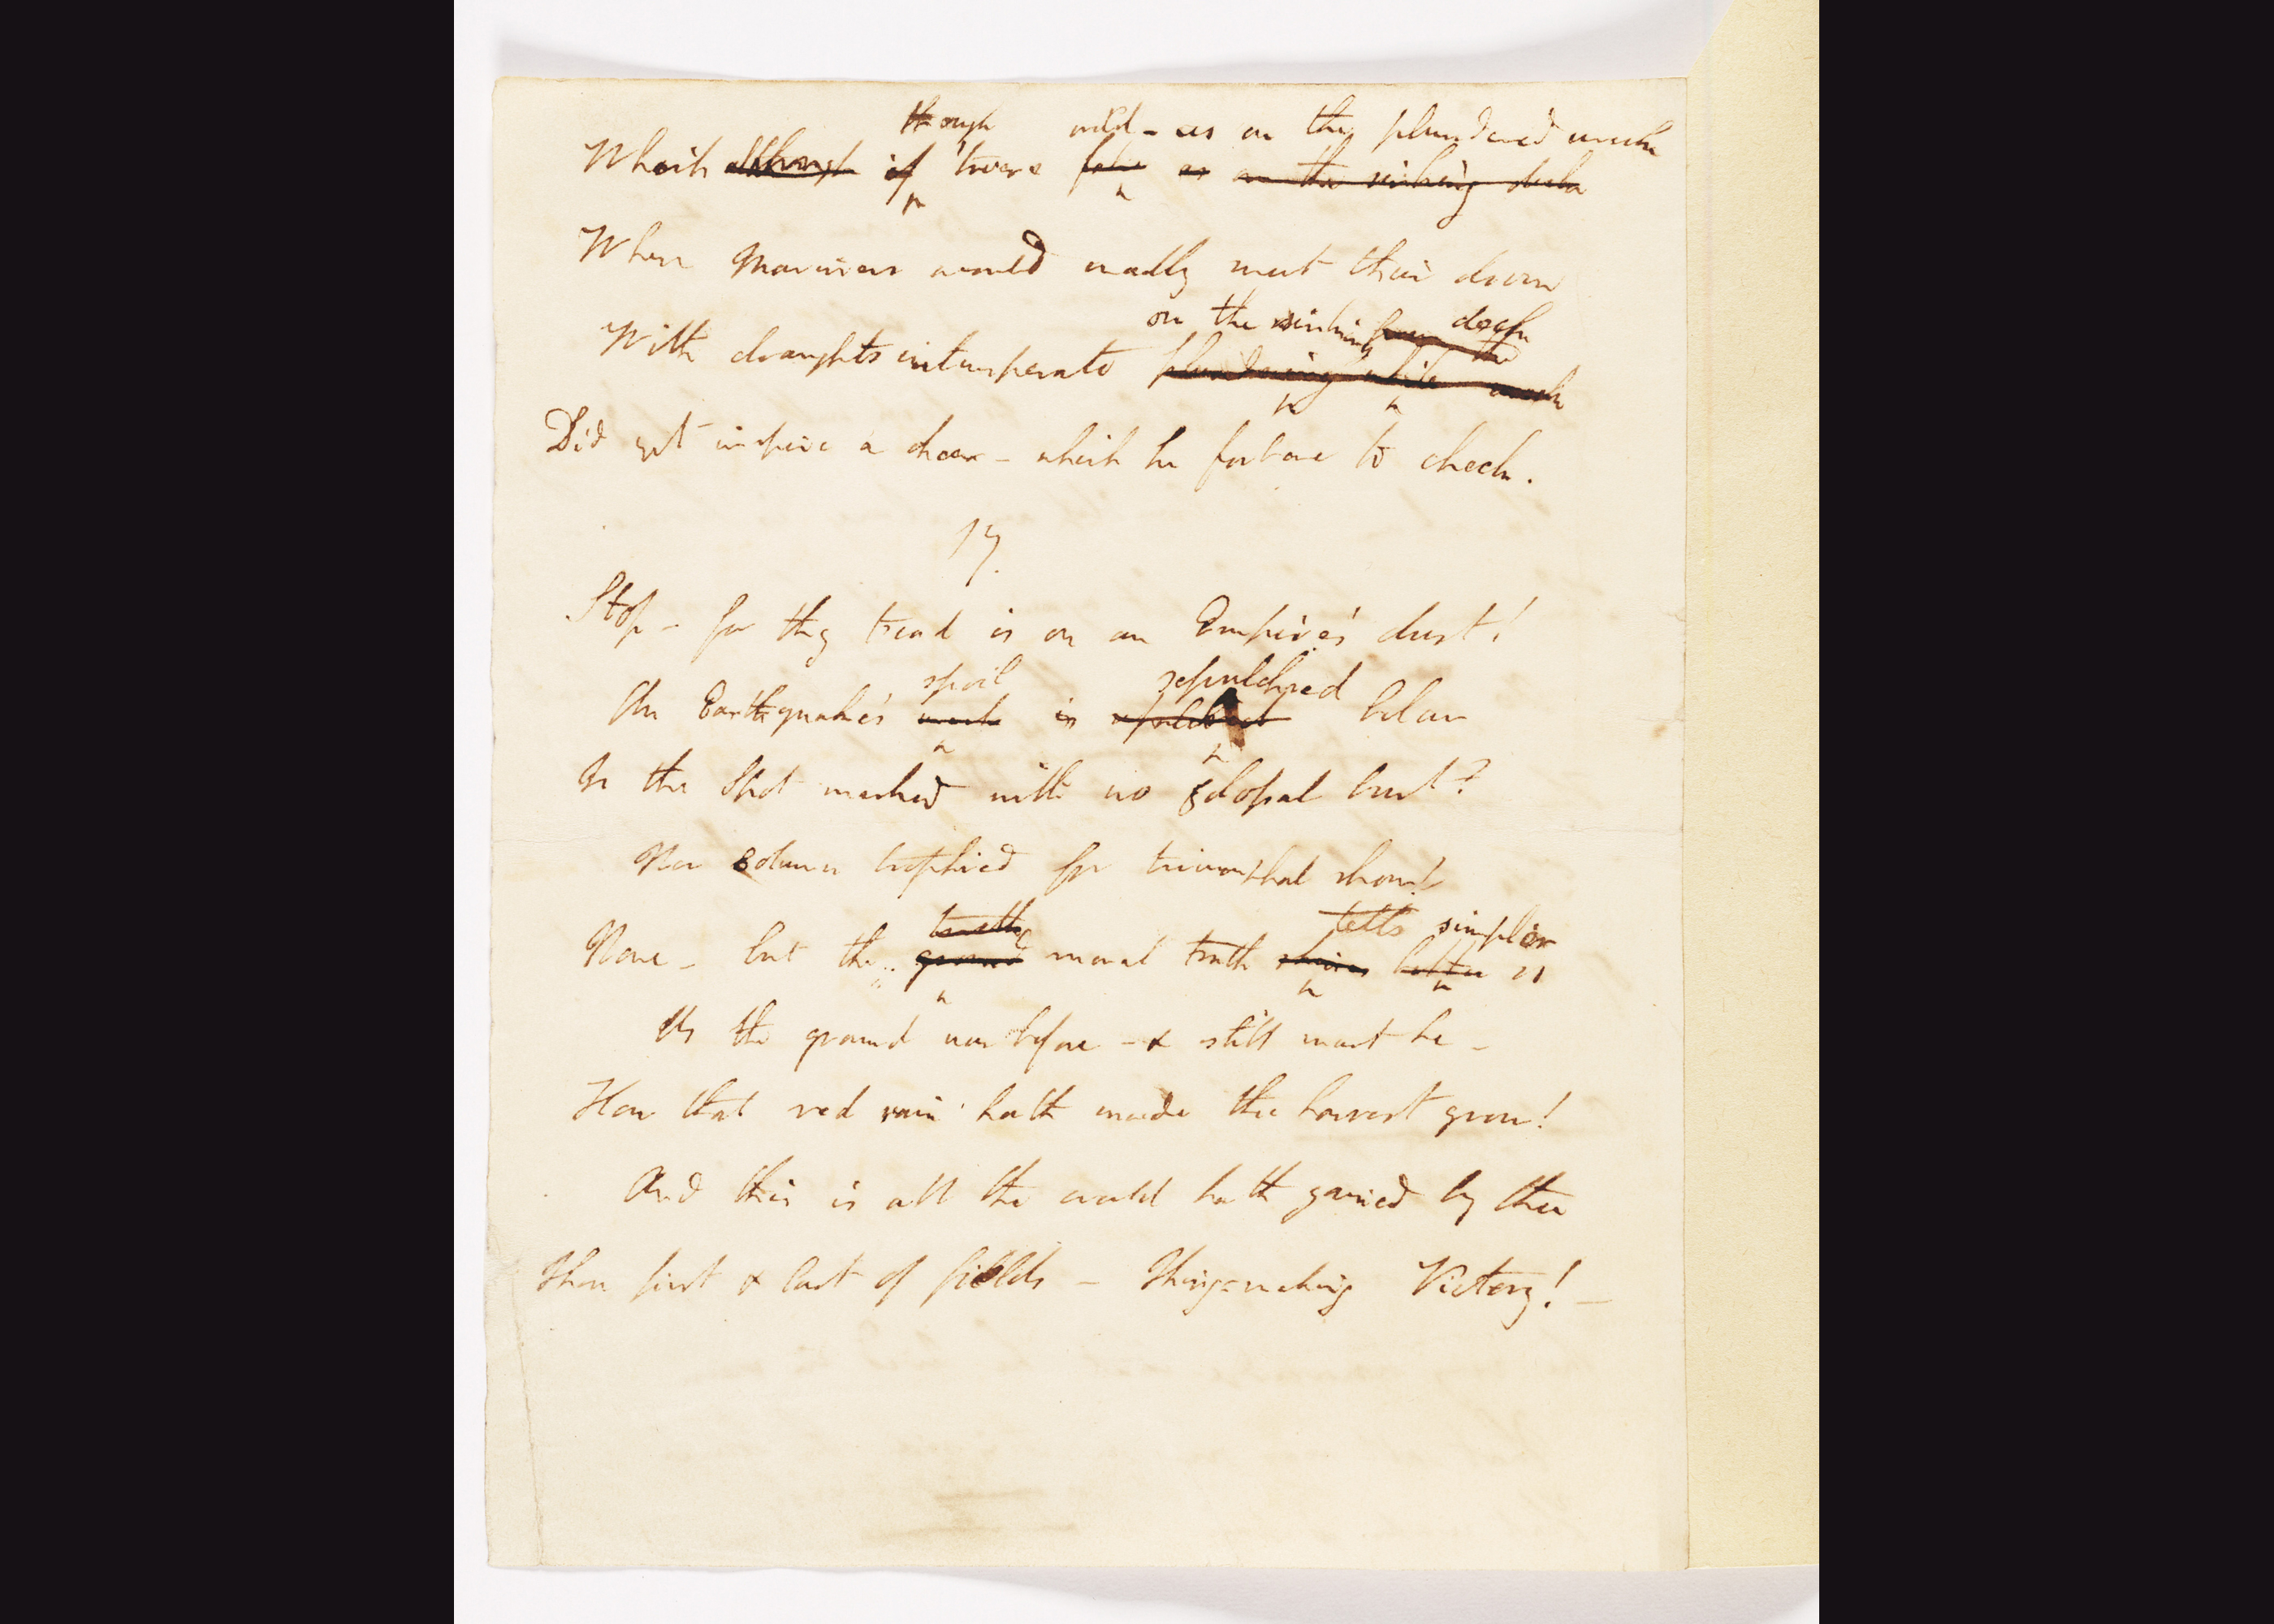 though wild – as on the plundered wreck
Which although if 'twere false as on the sinking deck
When Mariners would madly meet their doom
on the sinking deck
With draughts intemperate plundering while the wreck
Did yet inspire a cheer – which he forbore to check.
17.
Stop – for thy tread is on an Empire's dust!
spoil sepulchred
An Earthquake's wreck is sepulchred below
Is the Spot marked with no colossal bust?
Nor column trophied for triumphal show?
tells simpler
None – but the moral truth shines better so
As the ground was before – & still must be –
How that red rain hath made the harvest grow!
And this is all the world hath gained by thee
Thou first & last of fields – King-making Victory! –